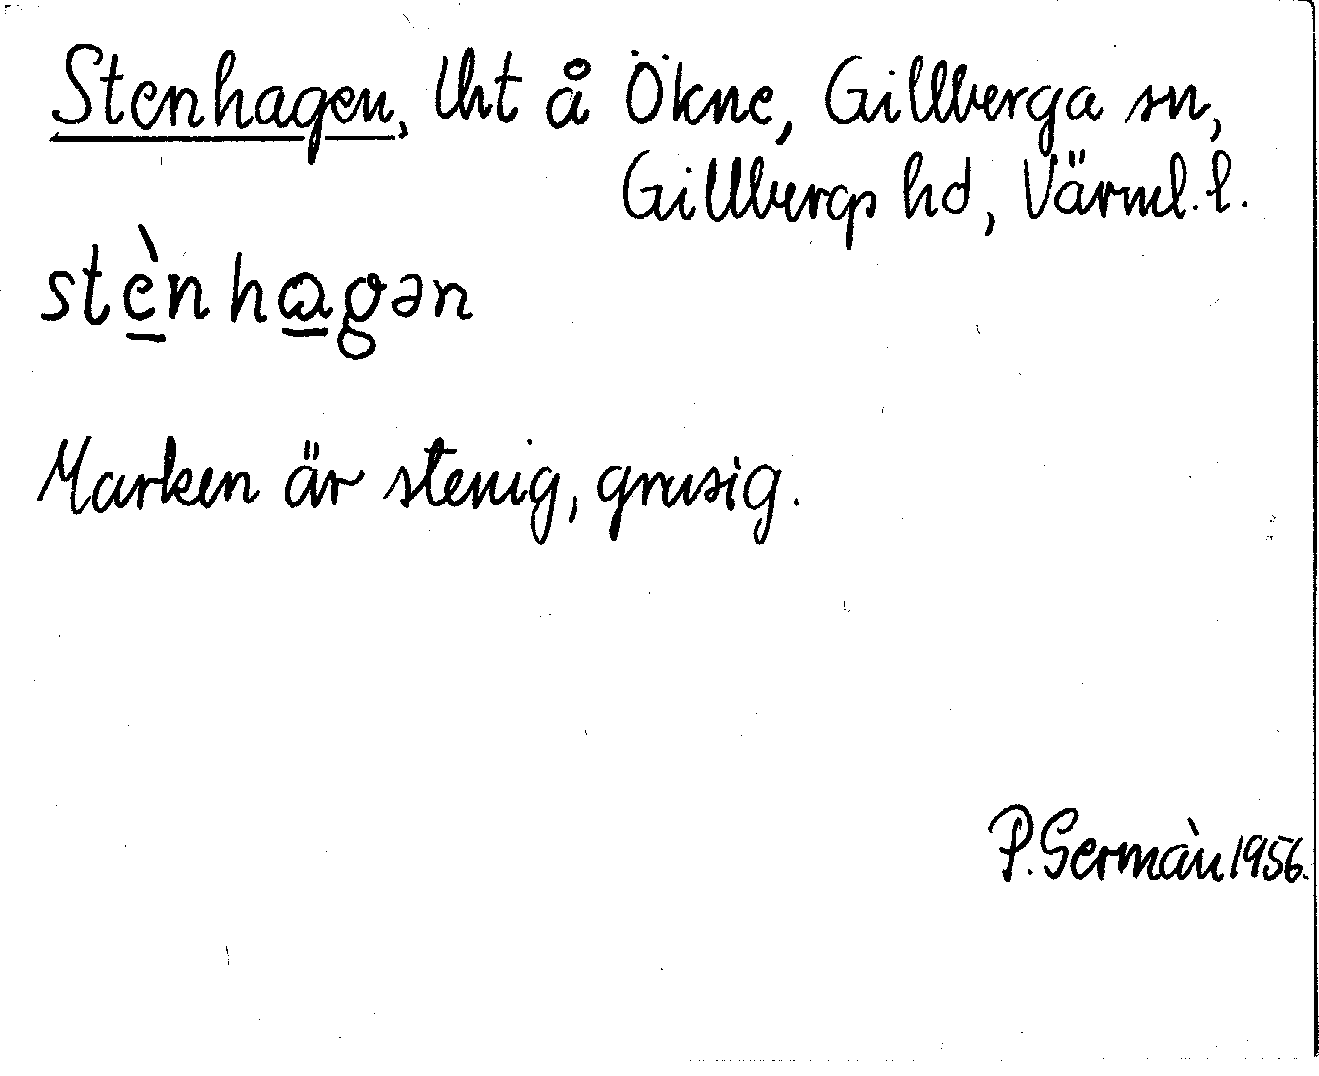 Stenhagen, lht å Ökne, Gillberga sn,
Gillbergs hd, Värml. l.
stè̱nha̱gən
Marken är stenig, grusig.
P. Germàn 1956.